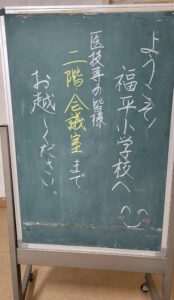 ようこそ!
福平小学校へ
医技専の皆様
二階会議室まで
お越しください。